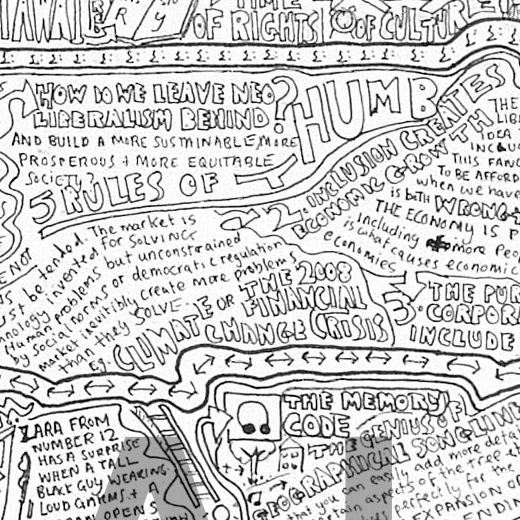 TIME
OF RIGHTS
OF CULTURE
HOW DO WE LEAVE NEO
LIBERALISM BEHIND?
AND BUILD A MORE SUSTAINABLE, MORE
PROSPEROUS + MORE EQUITABLE
SOCIETY?
5 RULES OF
HUMB
The market is
be tended.
invented for SOLVING
Human problems but unconstrained
by social norms or democratic regulation
market inevitibly create more problems
than they SOLVE.
Eg. CLIMATE OR THE 2008
CHANGE FINANCIAL
CRISIS
2. INCLUSION CREATES
ECONOMIC GROWTH
THE
LIB
IDEA
INCLU
THIS FANC
TO BE AFFORD
when we have
is both WRONG +
THE ECONOMY IS P
including more Peo
is what causes economic
economies
3. THE PUR
CORPORA
INCLUDE
LARA FROM
NUMBER 12
HAS A SURPRISE
WHEN A TALL
BLAKE GUY WEARING
LOUD
OPENS
THE MEMORY
CODE
THE GENIUS OF
GEOGRAPHICAL SONGLINE
that you can easily add more deta
certain aspects of the tree th
perfectly for the
EXPANSION OF
ENDIN